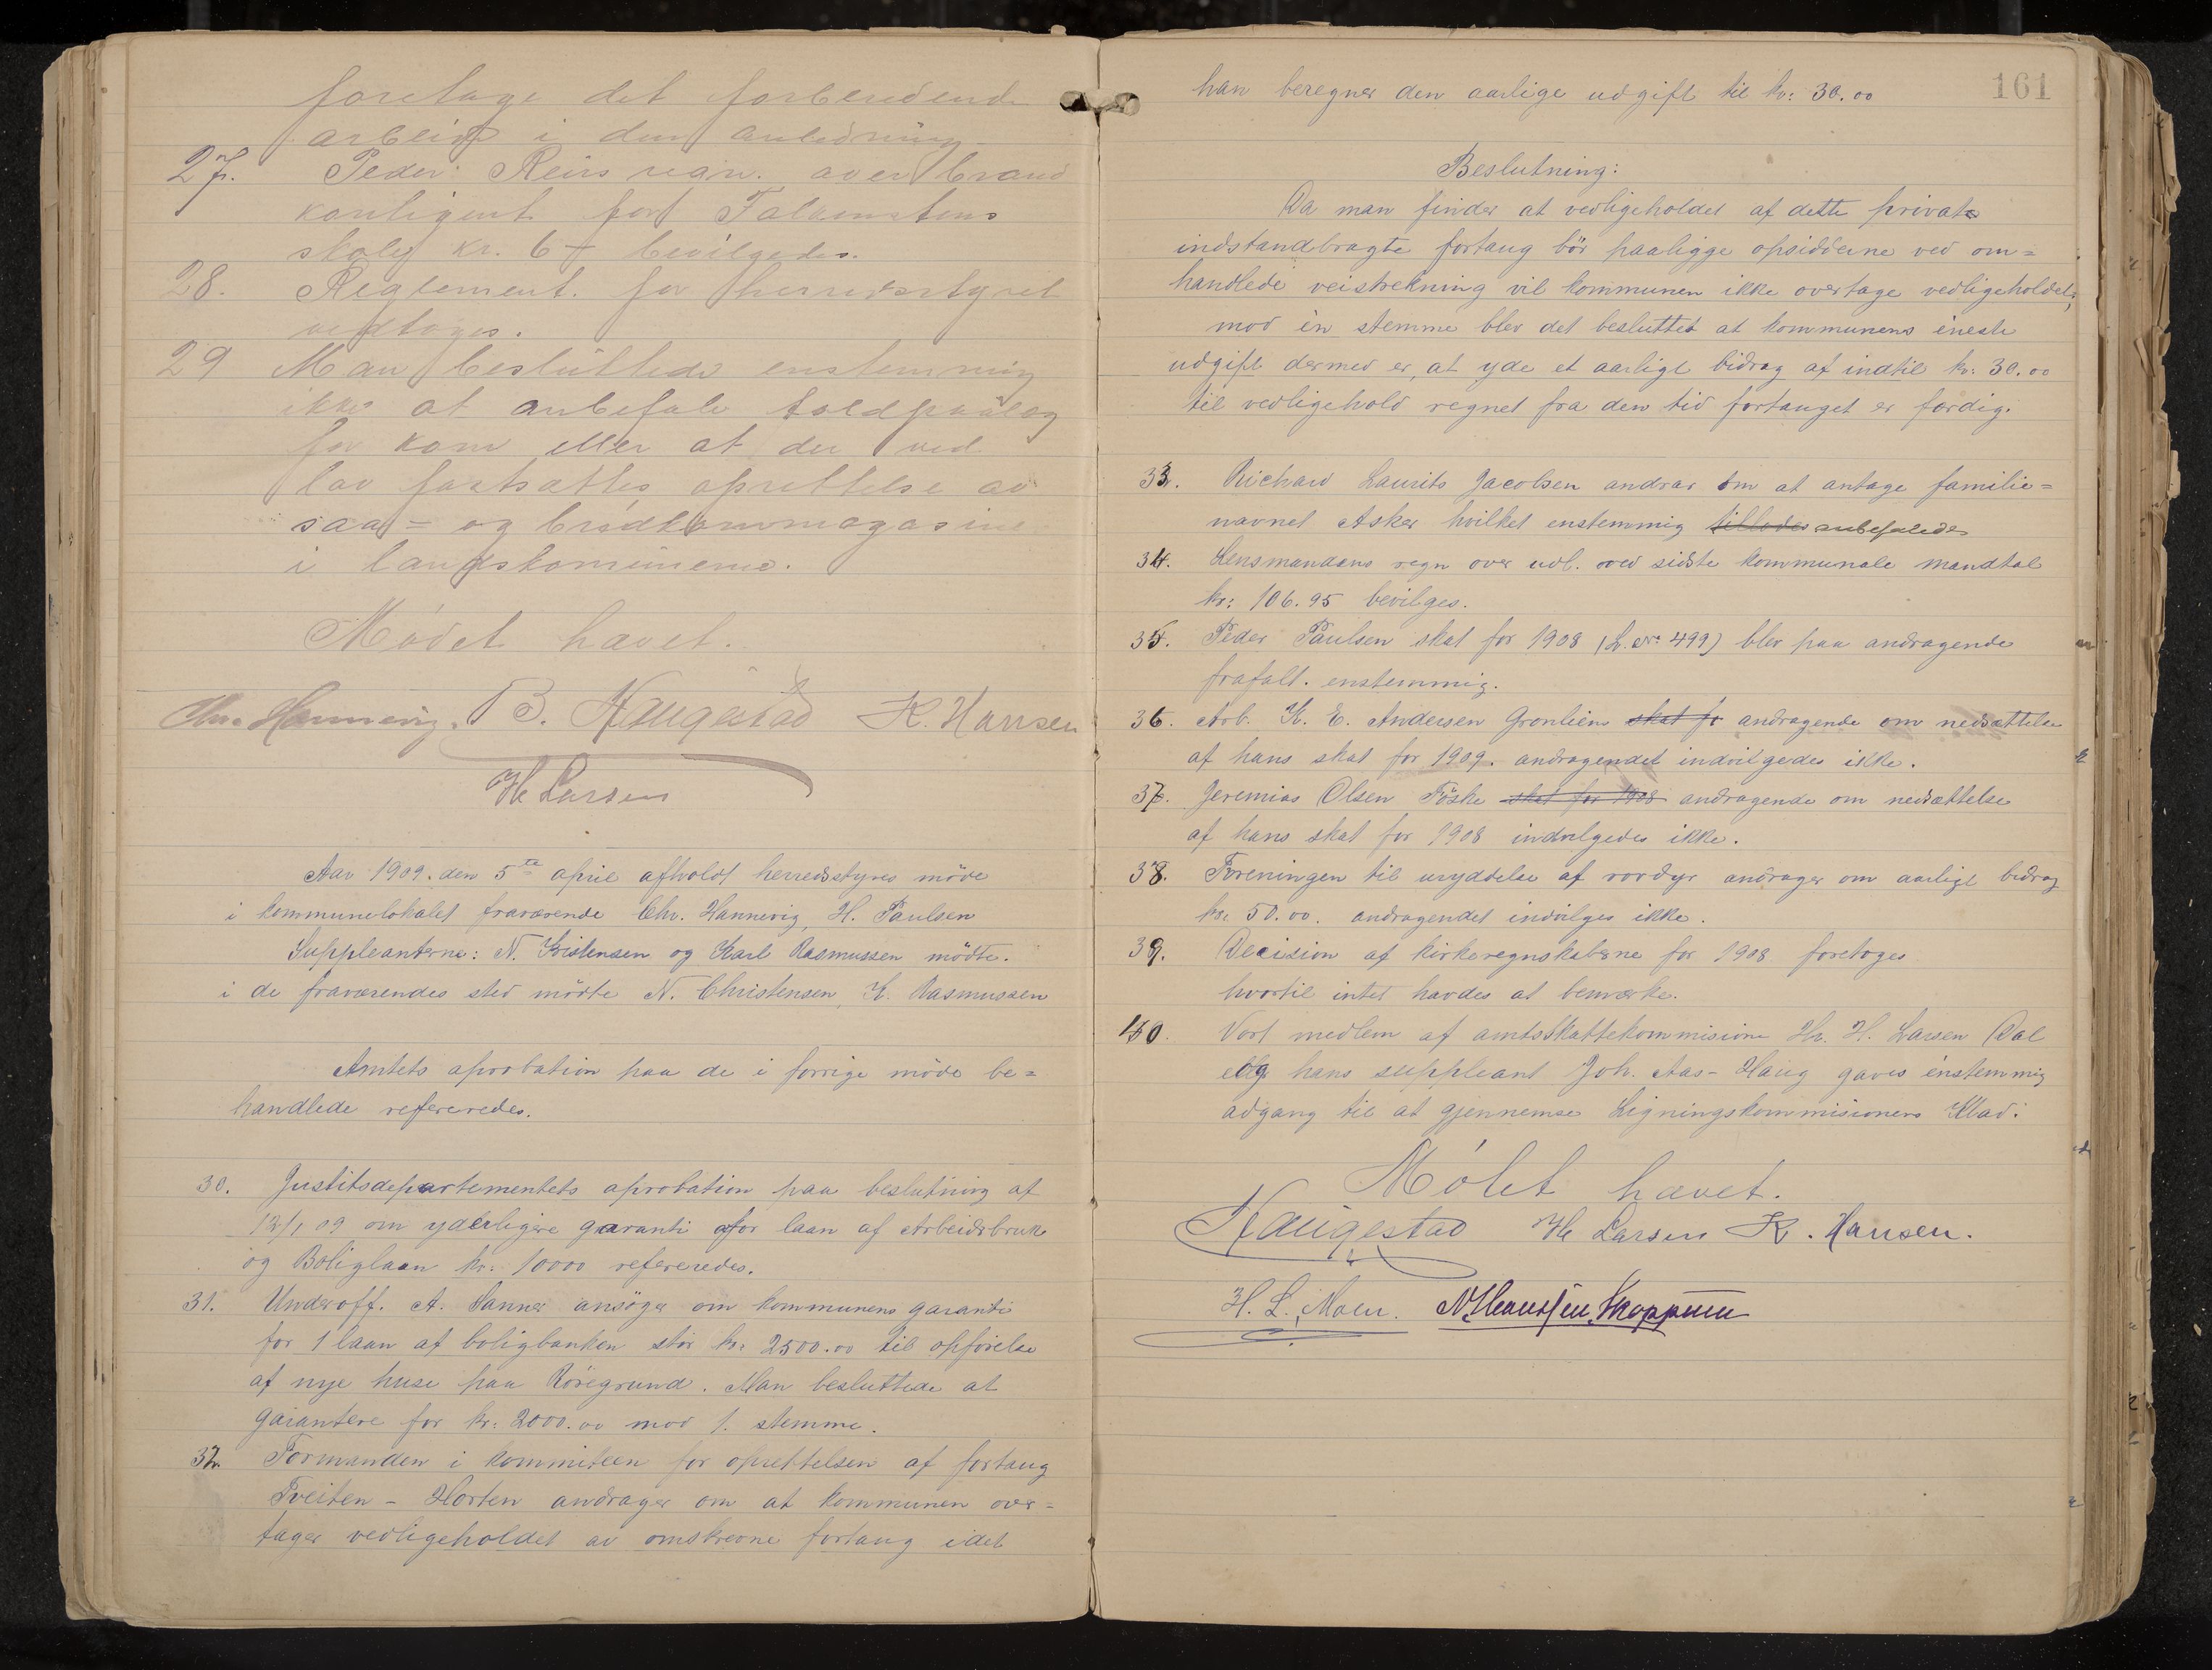 foretage det forberedende
arbeide i den anledning
27. Peder Reirs regn. over brand
kontigent for Falkenstens
skole kr. 6 bevilgedes.
28. Reglement for herredsstyret
vedtoges.
29 Man besluttede enstemmig
ikke at anbefale toldpaalæg
for korn eller at der ved
lov fastsættes oprettelse av
saa- og brødkornmagasine
i landskommunerne.
Mödet hævet.
Chr. Hannevig. B. Haugestad K. Hansen
H Larsen
Aar 1909. den 5te april afholdt herredsstyres möde
i kommunelokalet fraværende Chr. Hannevig, H. Paulsen
Suppleanterne: N. Kristensen og Karl Rasmussen mödte.
i de fraværendes sted mödte N. Christensen, K. Rasmussen
Amtets aprobation paa de i forrige möde be=
handlede refereredes.
30. Justitsdepartementets aprobation paa beslutning af
13/1 09 om yderligere garanti for laan af Arbeidsbruk
og Boliglaan kr: 10000 refereredes.
31. Underoff. A. Sanner ansöger om kommunens garanti
for 1 laan af boligbanken stör kr: 2500.00 til opförelse
af nye huse paa Röregrund. Man besluttede at
garantere for kr: 2000.00 mod 1. stemme.
32. Formanden i kommiteen for oprettelsen af fortaug
Tveiten - Horten andrager om at kommunen over=
tager vedligeholdet av omskrevne fortaug idet
161
han beregner den aarlige udgift til kr: 30.00
Beslutning:
Da man finder at vedligeholdet af dette private
indstandbragte fortaug bör paaligge opsidderne ved om=
handlede veistrekning vil kommunen ikke overtage vedligeholdet,
mod èn stemme blev det besluttet at kommunens èneste
udgift dermed er, at yde et aarligt bidrag af indtil kr: 30.00
til vedligehold regnet fra den tid fortauget er færdig.
33. Richard Laurits Jacobsen andrar om at antage familie=
navnet Asker hvilket enstemmig tillodes anbefaledes
34. Lensmandens regn over udl. ved sidste kommunale mandtal
kr: 106.95 bevilges.
35. Peder Paulsen skat for 1908 (L. No 499) blev paa andragende
frafalt. enstemmig.
36. Arb. K. E. Andersen Gronlien skat fo andragende om nedsættelse
af hans skat for 1909. andragendet indvilgedes ikke.
37. Jeremias Olsen Föske skat for 1908 andragende om nedsættelse
af hans skat for 1908 indvilgedes ikke.
38. Foreningen til uryddelse af rovdyr andrager om aarligt bidrag
kr: 50.00. andragendet indvilges ikke.
39. Decision af kirkeregnskaberne for 1908 foretoges
hvortil intet havdes at bemærke.
40. Vort medlem af amtsskattekommisionen Hr. H. Larsen Dal
og hans suppleant Joh. Aas-Haug gaves énstemmig
adgang til at gjennemse Ligningskommisionens Klad.
Mödet hævet.
Haugestad H Larsen K. Hansen.
H. L. Moen. N. Hanssen Skoppum